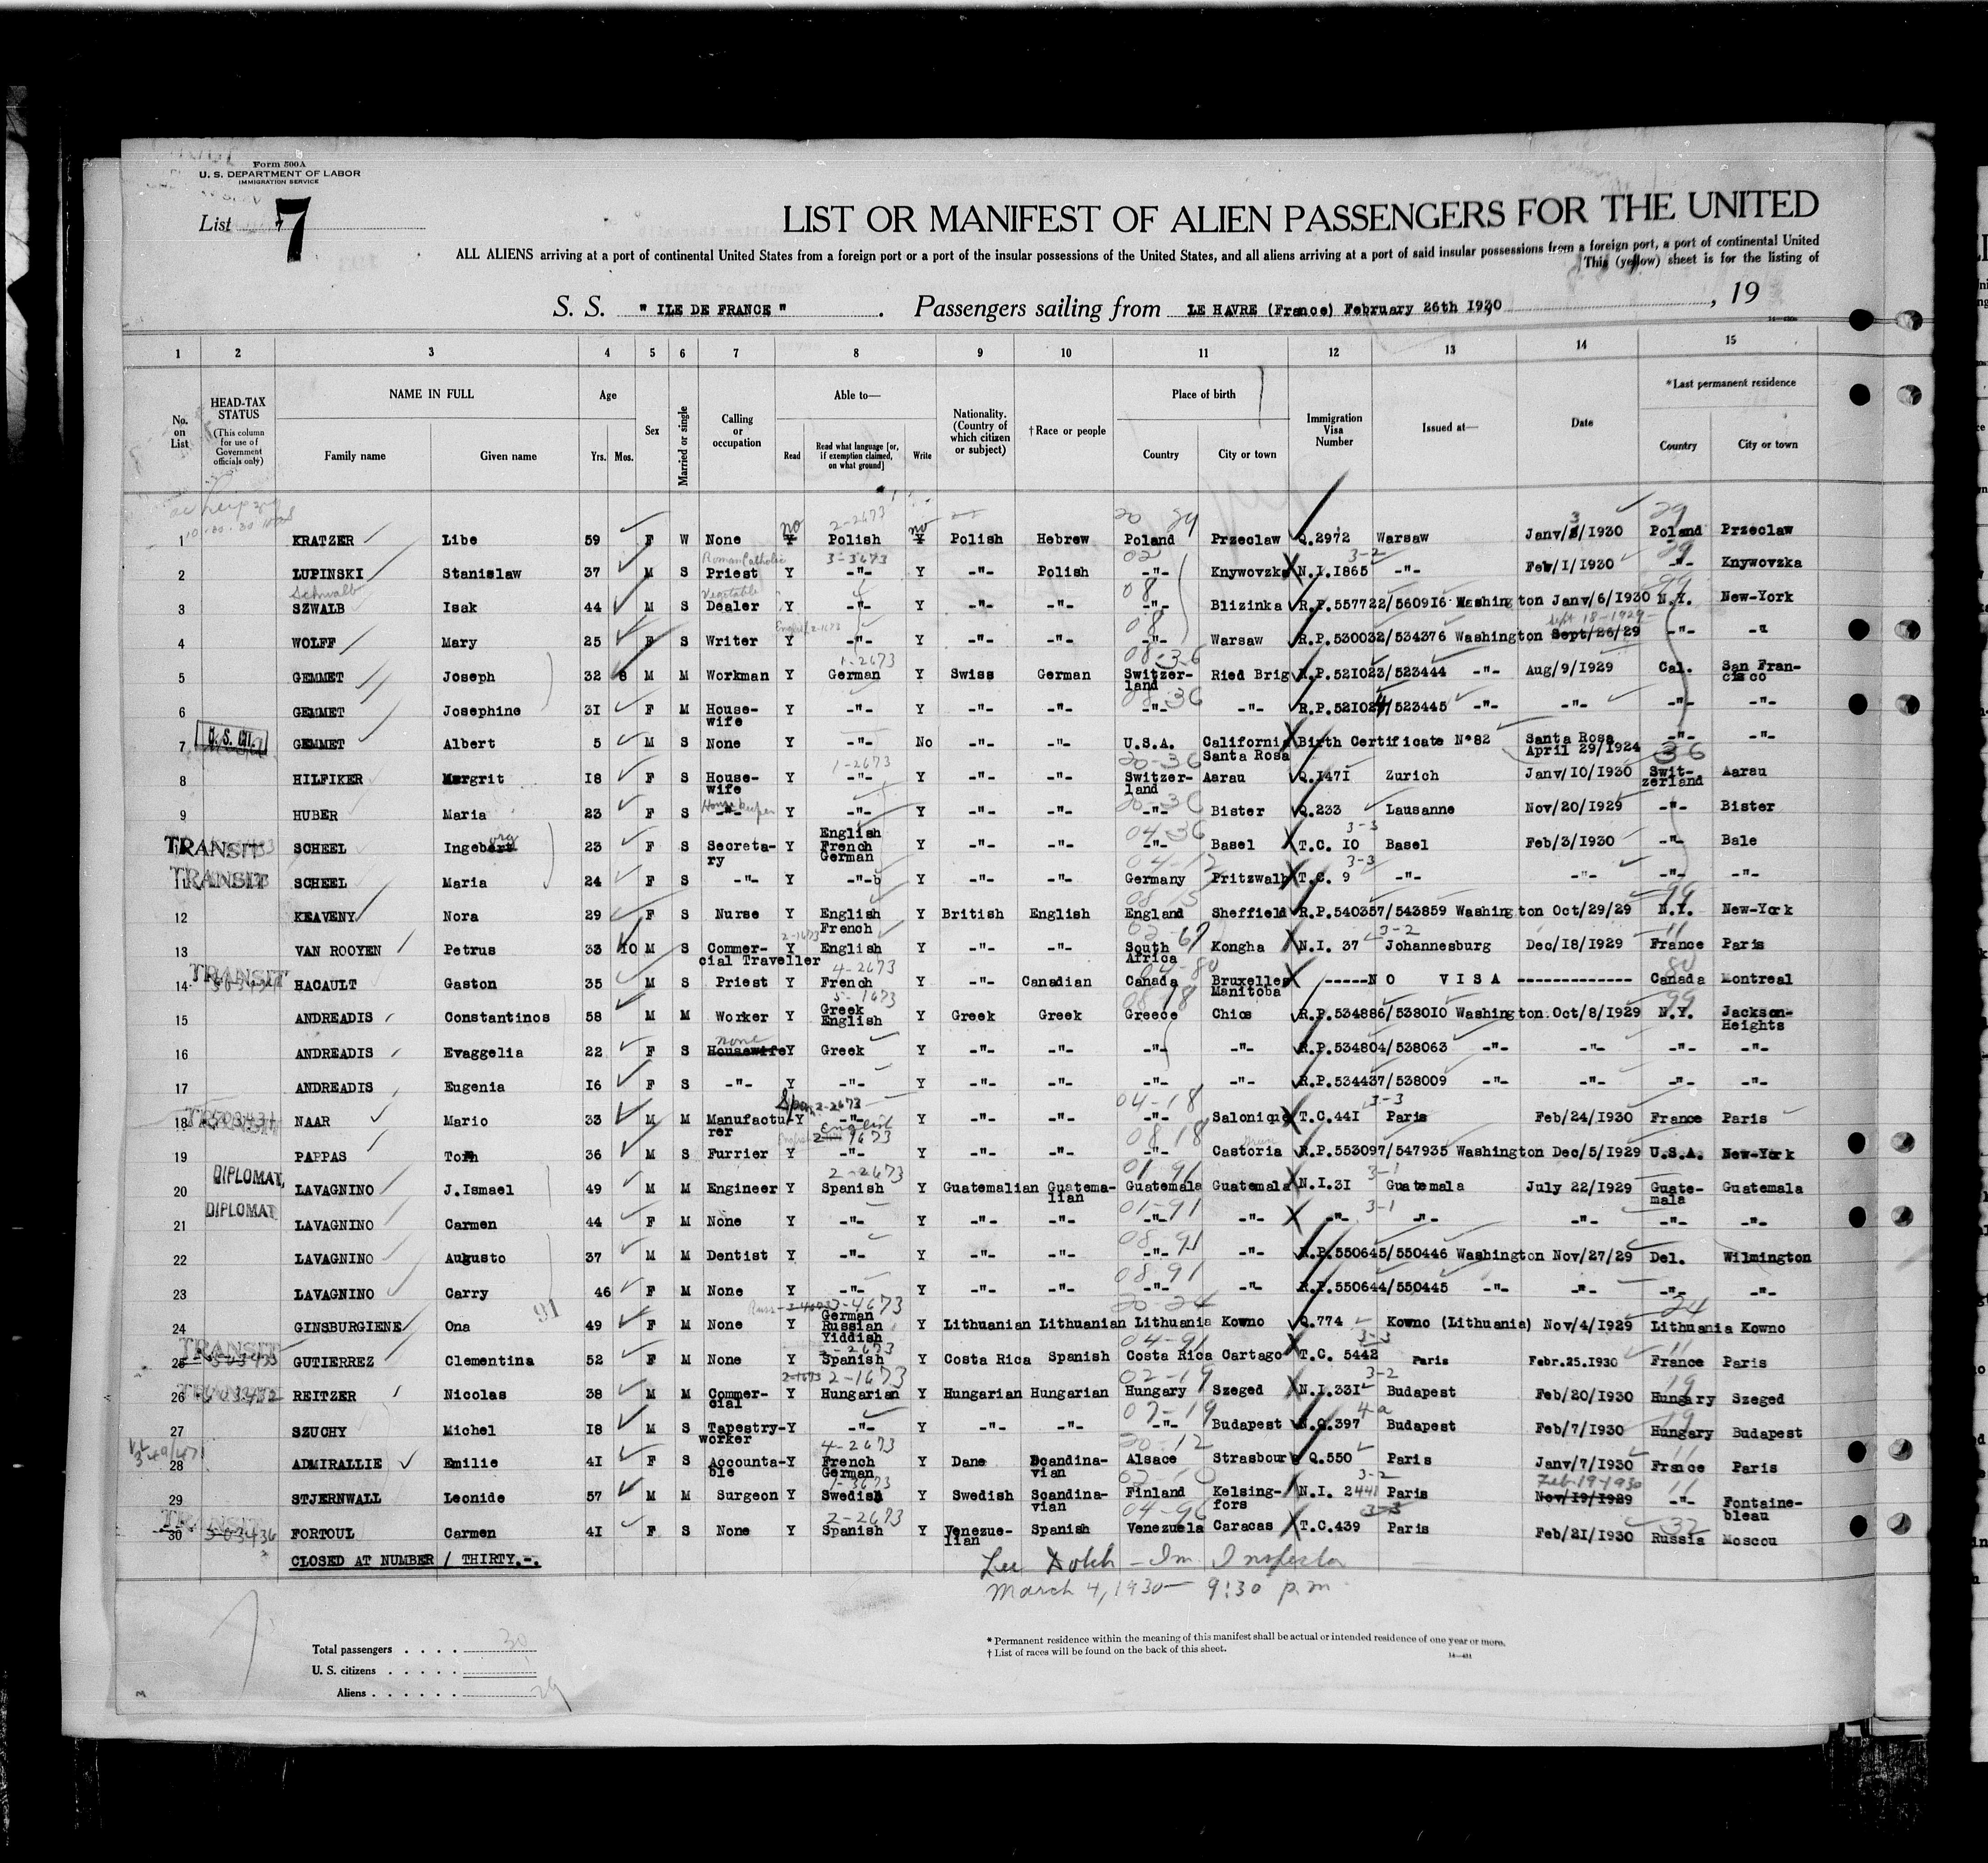 Form 500A
U. S. DEPARTMENT OF LABOR
IMMIGRATION SERVICE
List 7
LIST OR MANIFEST OF ALIEN PASSENGERS FOR THE UNITED
ALL ALIENS arriving at a port of continental United States from a foreign port or a port of the insular possessions of the United States, and all aliens arriving at a port of said insular possessions from a foreign port, a port of continental United
This (yellow) sheet is for the listing of
S. S. " ILE DE FRANCE " . Passengers sailing from LE HAVRE (France) February 26th 1930 , 19
1 2 3 4 5 6 7 8 9 10 11 12 13 14 15
No. on List
HEAD-TAX STATUS (This column for use of Government officials only)
NAME IN FULL
Family name Given name
Age Yrs. Mos.
Sex
Married or single
Calling or occupation
Able to—
Read Read what language [or, if exemption claimed, on what ground] Write
Nationality. (Country of which citizen or subject)
†Race or people
Place of birth
Country City or town
Immigration Visa Number
Issued at—
Date
*Last permanent residence
Country City or town
1 KRATZER Libe 59 F W None no Polish no Polish Hebrew Poland Przeclaw Q.2972 Warsaw Janv/3/1930 Poland Przeclaw
2 LUPINSKI Stanislaw 37 M S Roman Catholic Priest Y -"- Y -"- Polish -"- Knywovzka N.I.1865 -"- Fev/1/1930 -"- Knywovzka
3 Schwalb SZWALB Isak 44 M S Vegetable Dealer Y -"- Y -"- -"- -"- Blizinka R.P.557722/560916 Washington Janv/6/1930 N.Y. New-York
4 WOLFF Mary 25 F S Writer Y -"- Y -"- -"- -"- Warsaw R.P.530032/534376 Washington Sept/26/29 Sept 18-1929 -"- -"
5 GEMMET Joseph 32 8 M M Workman Y German Y Swiss German Switzer-land Ried Brig R.P.521023/523444 -"- Aug/9/1929 Cal. San Francisco
6 GEMMET Josephine 31 F M House-wife Y -"- Y -"- -"- -"- -"- R.P.521024/523445 -"- -"- -"- -"-
7 U. S. CIT. GEMMET Albert 5 M S None Y -"- No -"- -"- U.S.A. California Santa Rosa Birth Certificate N°82 Santa Rosa April 29/1924 -"- -"-
8 HILFIKER Margrit 18 F S House-wife Y -"- Y -"- -"- Switzer-land Aarau Q.1471 Zurich Janv/10/1930 Swit-zerland Aarau
9 HUBER Maria 23 F S Housekeeper -"- Y -"- Y -"- -"- -"- Bister Q.233 Lausanne Nov/20/1929 -"- Bister
TRANSIT SCHEEL Ingeborg 23 F S Secreta-ry Y English French German Y -"- -"- -"- Basel T.C. 10 Basel Feb/3/1930 -"- Bale
11 TRANSIT SCHEEL Maria 24 F S -"- Y -"- Y -"- -"- Germany Pritzwalk T.C. 9 -"- -"- -"- -"-
12 KEAVENY Nora 29 F S Nurse Y English French Y British English England Sheffield R.P.540357/543859 Washington Oct/29/29 N.Y. New-York
13 VAN ROOYEN Petrus 33 10 M S Commer-cial Traveller Y English Y -"- -"- South Africa Kongha N.I. 37 Johannesburg Dec/18/1929 France Paris
14 TRANSIT HACAULT Gaston 35 M S Priest Y French Y -"- Canadian Canada Bruxelles Manitoba -----N O V I S A ------------- Canada Montreal
15 ANDREADIS Constantinos 58 M M Worker Y Greek English Y Greek Greek Greece Chios R.P.534886/538010 Washington Oct/8/1929 N.Y. Jackson-Heights
16 ANDREADIS Evaggelia 22 F S none Housewife Y Greek Y -"- -"- -"- -"- R.P.534804/538063 -"- -"- -"- -"-
17 ANDREADIS Eugenia 16 F S -"- Y -"- Y -"- -"- -"- -"- R.P.534437/538009 -"- -"- -"- -"-
18 NAAR Mario 33 M M Manufactu-rer Y Span -"- Y -"- -"- -"- Salonique T.C.441 Paris Feb/24/1930 France Paris
19 PAPPAS Tom 36 M S Furrier Y English -"- Y -"- -"- -"- Castoria R.P.553097/547935 Washington Dec/5/1929 U.S.A. New-York
20 DIPLOMAT, LAVAGNINO J.Ismael 49 M M Engineer Y Spanish Y Guatemalian Guatema-lian Guatemala Guatemala N.I.31 Guatemala July 22/1929 Guate-mala Guatemala
21 DIPLOMAT LAVAGNINO Carmen 44 F M None Y -"- Y -"- -"- -"- -"- -"- -"- -"- -"- -"-
22 LAVAGNINO Augusto 37 M M Dentist Y -"- Y -"- -"- -"- -"- R.P.550645/550446 Washington Nov/27/29 Del. Wilmington
23 LAVAGNINO Carry 46 F M None Y -"- Y -"- -"- -"- -"- R.P.550644/550445 -"- -"- -"- -"-
24 GINSBURGIENE Ona 49 F M None Y German Russian Yiddish Y Lithuanian Lithuanian Lithuania Kowno Q.774 Kowno (Lithuania) Nov/4/1929 Lithuania Kowno
25 TRANSIT GUTIERREZ Clementina 52 F M None Y Spanish Y Costa Rica Spanish Costa Rica Cartago T.C. 5442 Paris Febr.25.1930 France Paris
26 REITZER Nicolas 38 M M Commer-cial Y Hungarian Y Hungarian Hungarian Hungary Szeged N.I.331 Budapest Feb/20/1930 Hungary Szeged
27 SZUCHY Michel 18 M S Tapestry-worker Y -"- Y -"- -"- -"- Budapest N.Q.397 Budapest Feb/7/1930 Hungary Budapest
28 ADMIRALLIE Emilie 41 F S Accounta-ble Y French German Y Dane Scandina-vian Alsace Strasbourg Q.550 Paris Janv/7/1930 France Paris
29 STJERNWALL Leonide 57 M M Surgeon Y Swedish Y Swedish Scandina-vian Finland Kelsing-fors N.I. 2441 Paris Nov/19/1929 Feb-19-1930 -"- Fontaine-bleau
30 TRANSIT 503436 FORTOUL Carmen 41 F S None Y Spanish Y Venezue-lian Spanish Venezuela Caracas T.C.439 Paris Feb/21/1930 Russia Moscou
CLOSED AT NUMBER / THIRTY.-.
Im Inspector
March 4, 1930 — 9:30 p.m.
Total passengers . . . . 30
U. S. citizens . . . . .
Aliens . . . . . . 29
* Permanent residence within the meaning of this manifest shall be actual or intended residence of one year or more.
† List of races will be found on the back of this sheet.
14—431